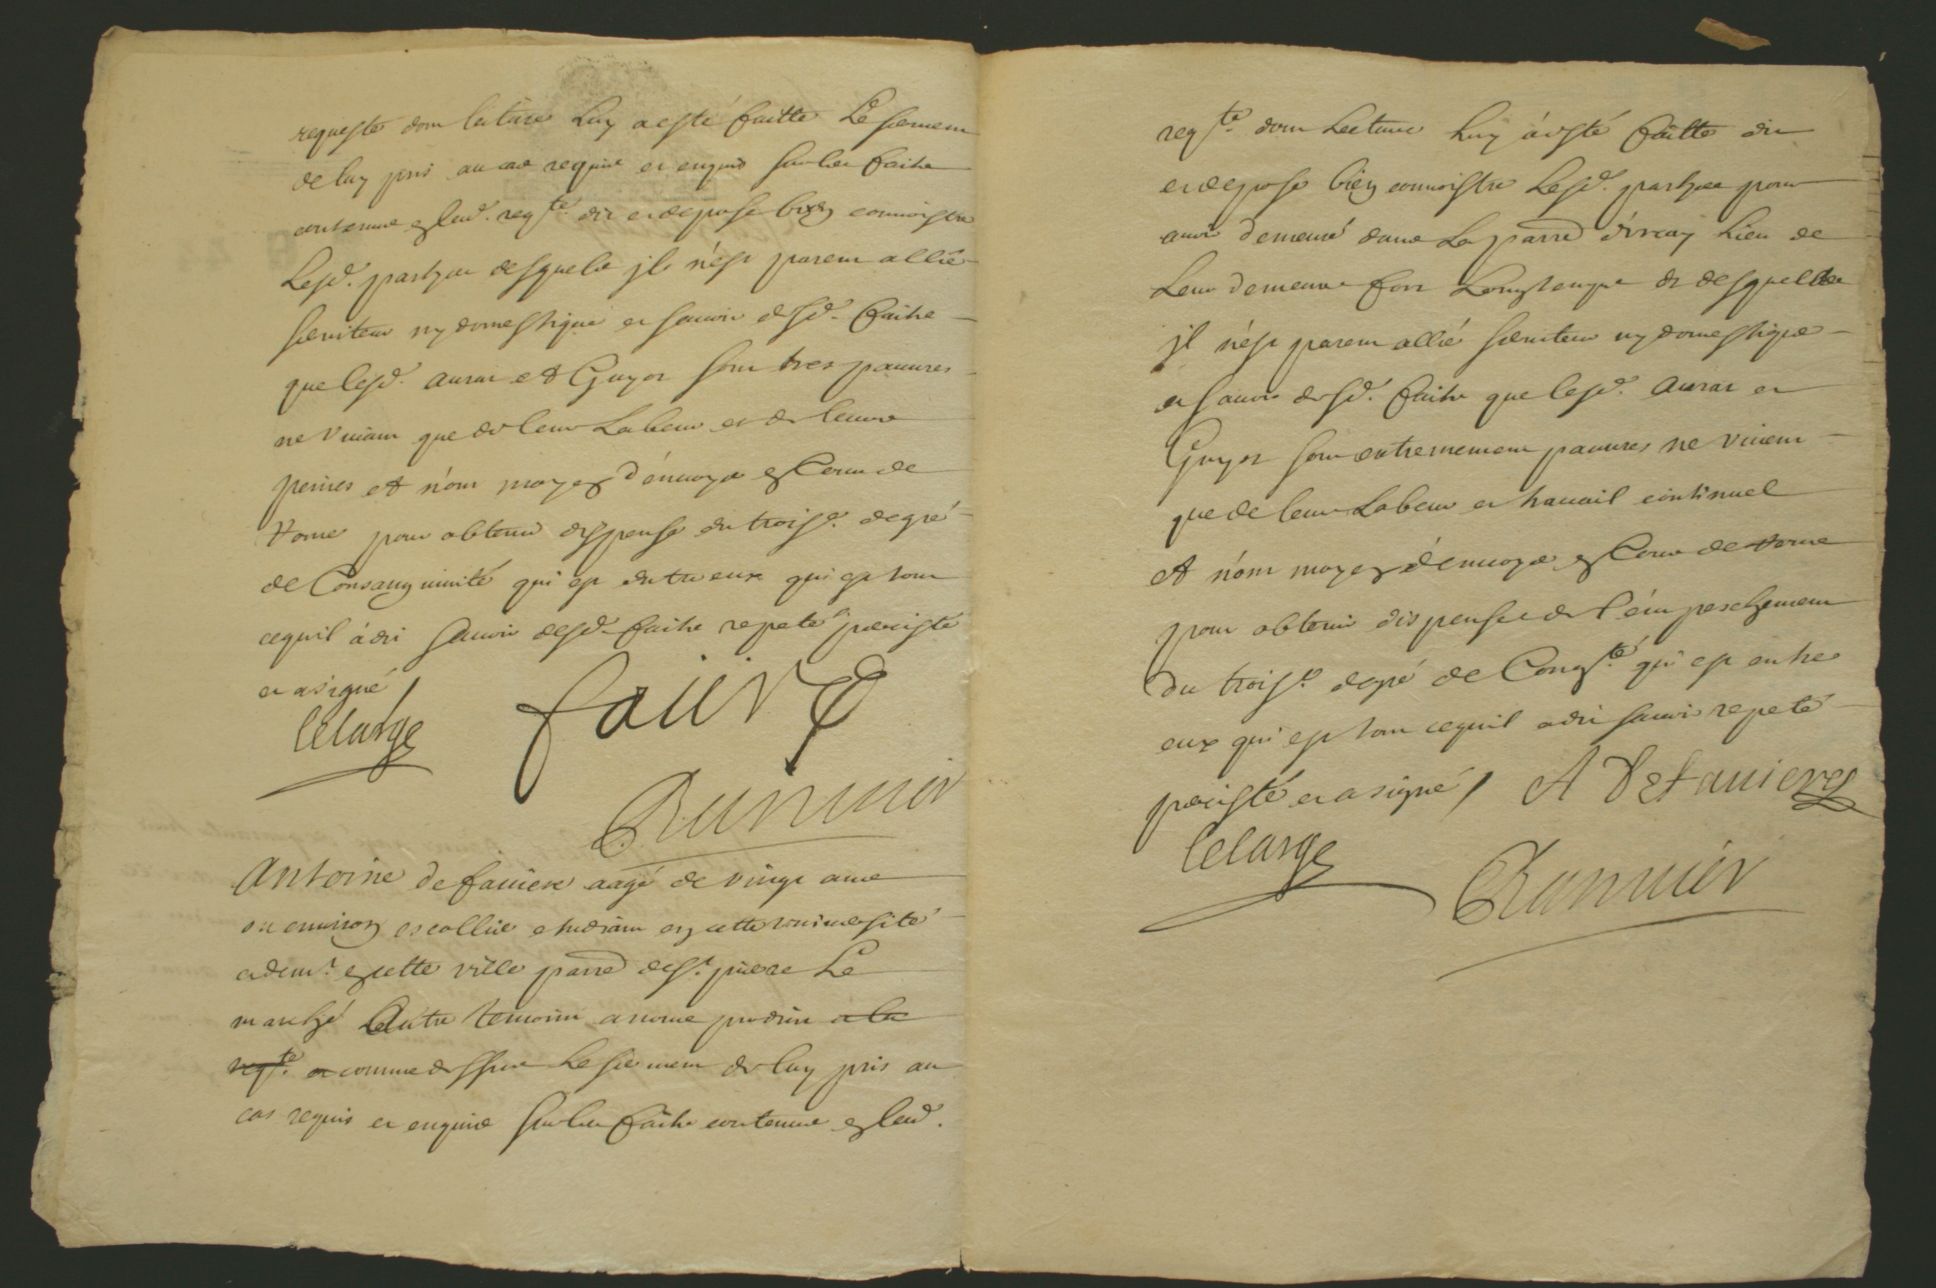 requeste dont lecture luy a esté faitte Le serment
de luy pris au cas requis et enquis sur les faits
contenus en lad. reqte. dit et depose bien connoistre
Lesd. partyes desquels il n'est parent allié
serviteur ny domestique et scavoir desd. faits
que lesd. aurat et Guyot sont tres pauvres
ne vivant que de leur Labeur et de leurs
peines et n'ont moyen d'envoyer en Cour de
rome pour obtenir dispense du troise. degré
de Consanguinité qui est entre eux qui est tout
cequil à dit scavoir desd. faits repeté persisté
et a signé
lelarge faure
Rammier
Antoine de faviere aagé de vingt ans
ou environ escollier etudiant en cette université
et demt. en cette ville parr. de St. pierre Le
marché Autre temoin a nous produit a la
reqte. et comme dessus Le serment de luy pris au
cas requis et enquis sur les faits contenus en lad.
reqte. dont Lecture luy à esté faitte dit
et depose bien connoistre Lesd. partyes pour
avoir demeuré dans La parr. Lieu de
Leur demeure fort Longtemps et desquelles
il n'est parent allié serviteur ny domestique
et scavoir desd. faits que lesd. aurat et
Guyot sont extremement pauvres ne vivent
que de leur Labeur et travail continuel
et n'ont moyen d'envoyer en Cour de rome
pour obtenir dispense de l'émpeschement
du troise. degré de Congte. qui est entre
eux qui est tout cequil a dit scavoir repeté
persisté et a signé / A Defaviere
lelarge
Rammier